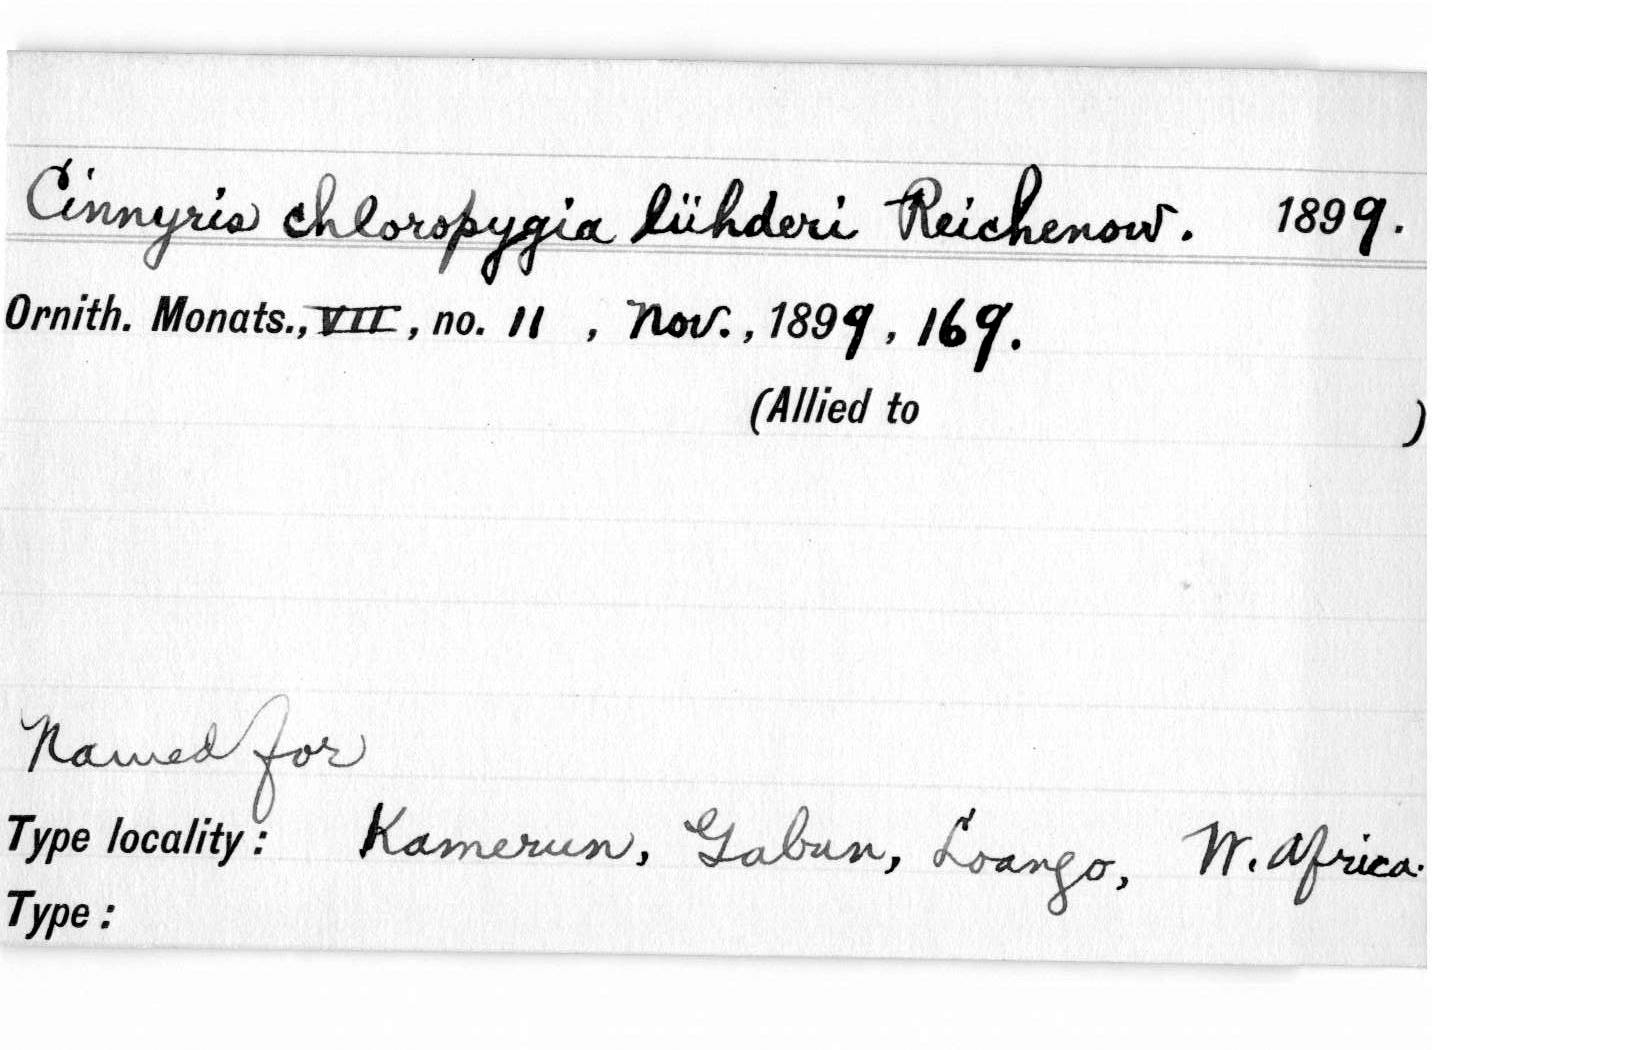 Cinnyris chloropygia lühderi Reichenow. 1899.
Ornith. Monats., VII, no. 11, Nov., 1899, 169.
(Allied to )
Named for
Type locality: Kamerun, Gabun, Loango, W. Africa.
Type: